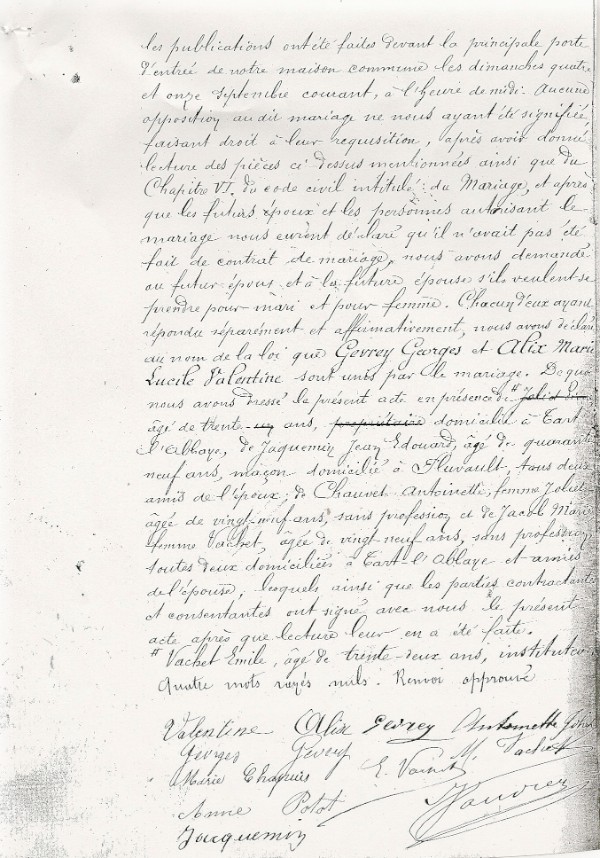 les publications ont été faites devant la principale porte
d'entrée de notre maison commune les dimanches quatre
et onze Septembre courant, à l'heure de midi. Aucune
opposition au dit mariage ne nous ayant été signifiée,
faisant droit à leur requisition, après avoir donné
lecture des pièces ci dessus mentionnées ainsi que du
Chapitre VI, du code civil intitulé: du Mariage, et après
que les futurs époux et les personnes autorisant le
mariage nous eurent déclaré qu'il n'avait pas été
fait de contrat de mariage, nous avons demandé
au futur époux et à la future épouse s'ils veulent se
prendre pour mari et pour femme. Chacun d'eux ayant
répondu séparément et affirmativement, nous avons déclaré
au nom de la loi que Gevrey Georges et Alix Marie
Lucile Valentine sont unis par le mariage. De quoi
nous avons dressé le présent acte en présence de # Joliet
âgé de trente un ans, propriétaire domicilié à Tart
l'Abbaye, de Jaquemin Jean Edouard, âgé de quarante
neuf ans, maçon domicilié à Pluvault, tous deux
amis de l'époux; de Chauvet Antoinette, femme Joliet
âgée de vingt neuf ans, sans profession et de Jacob Marie
femme Vachet, âgée de vingt neuf ans, sans profession,
toutes deux domiciliées à Tart-l'Abbaye et amies
de l'épouse, lesquels ainsi que les parties contractantes
et consentantes ont signé avec nous le présent
acte après que lecture leur en a été faite.
# Vachet Emile, âgé de trente-deux ans, instituteur
Quatre mots rayés nuls. Renvoi approuvé
Valentine Alix Gevrey Antoinette Joliet
Georges Gevrey M. Vachet
Marie Chapuis E. Vachet
Annie Potot
Jacquemin